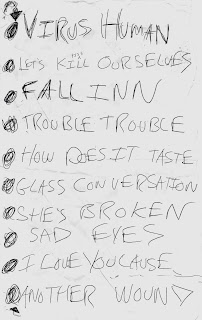 VIRUS HUMAN
LET'S KILL OURSELVES
FALL INN
TROUBLE TROUBLE
HOW DOES IT TASTE
GLASS CONVERSATION
SHE'S BROKEN
SAD EYES
I LOVE YOU CAUSE
ANOTHER WOUND